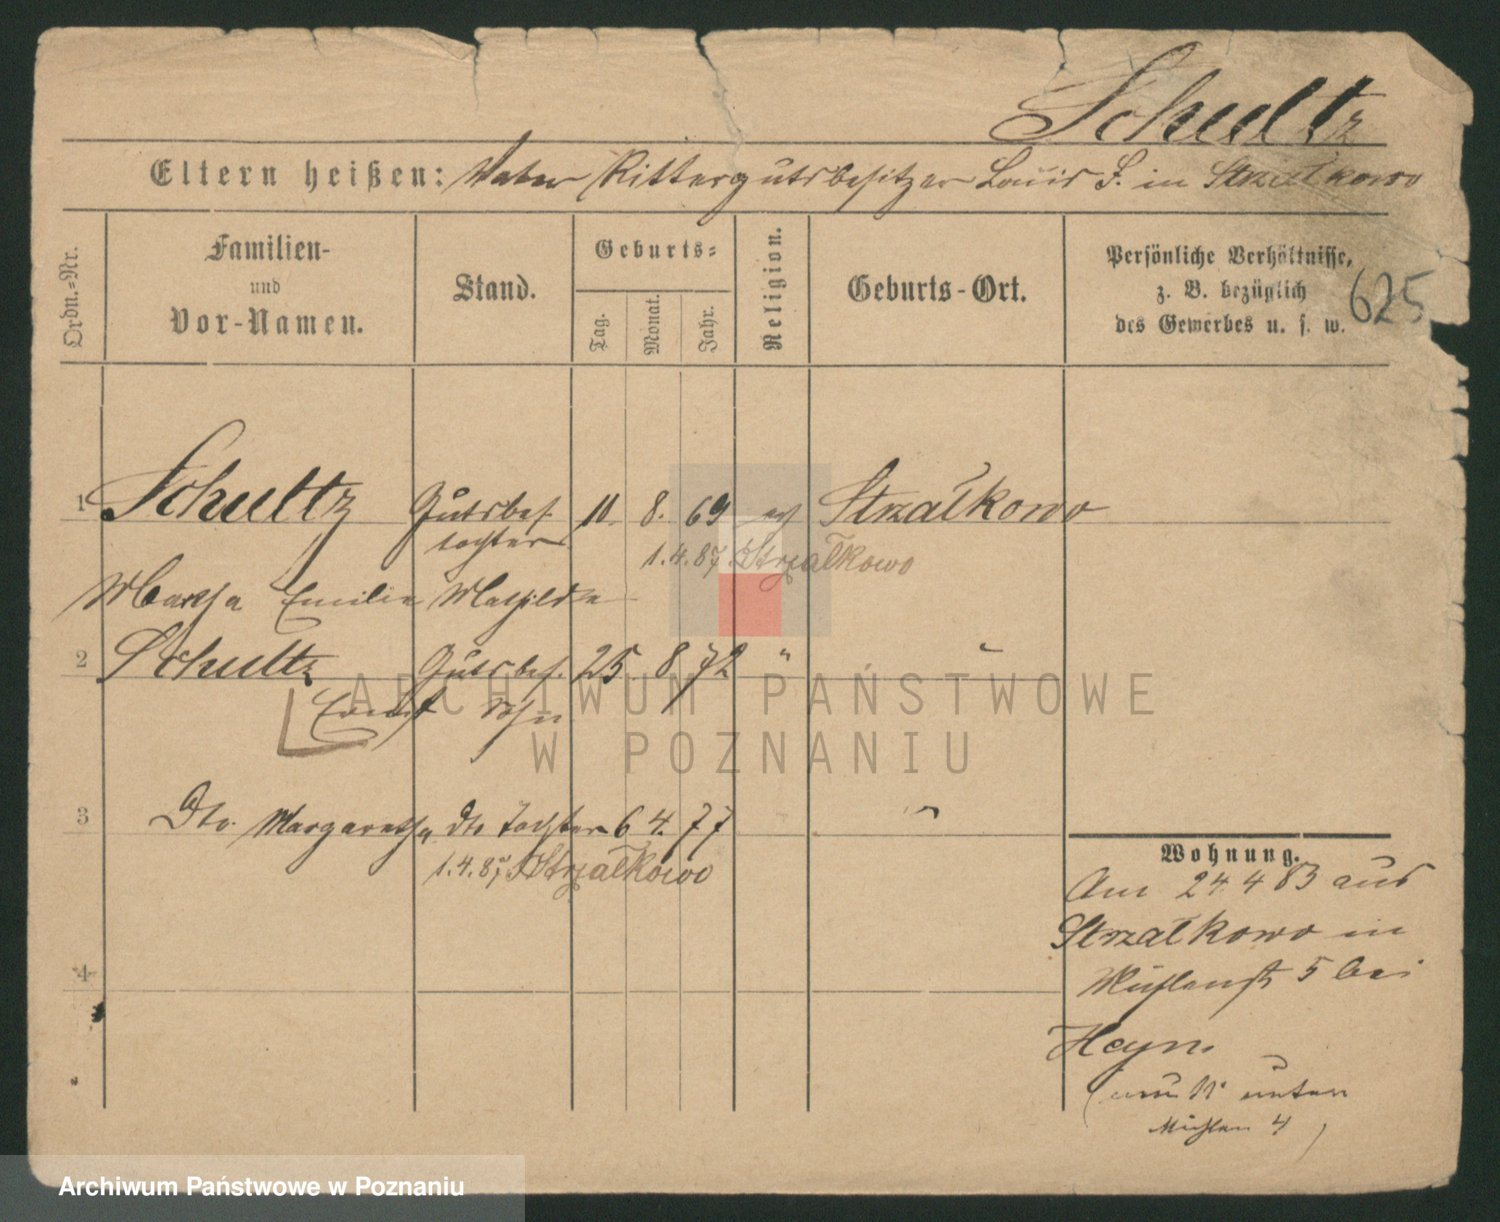 Schultz
Eltern heißen: Vater Rittergutsbesitzer Louis S. in Strzałkowo
Ordn.=Nr.
Familien-
und
Vor-Namen.
Stand.
Geburts=
Tag.
Monat.
Jahr.
Religion.
Geburts-Ort.
Persönliche Verhältnisse,
z. B. bezüglich
des Gewerbes u. s. w.
625
1 Schultz Gutsbes. 10. 8. 69 ev Strzałkowo
tochter
1.4.87. Strzałkowo
Martha Emilie Mathilde
2 Schultz Gutsbes. 25. 8 72 "
Ernst Sohn
3 Dto. Margaretha dto Tochter 6 4. 77 "
1.4.87 Strzałkowo
4
Wohnung.
Am 24 4 83 aus
Strzałkowo in
Mühlenstr 5 bei
Heyn.
unten
Mühlen 4)
ARCHIWUM PAŃSTWOWE
W POZNANIU
Archiwum Państwowe w Poznaniu